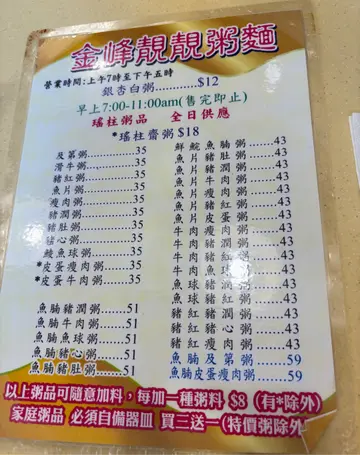 金峰靚靚粥麵
營業時間:上午7時至下午五時
銀杏白粥............$12
早上7:00-11:00am(售完即止)
瑤柱粥品 全日供應
*瑤柱齋粥 $18
及第粥............35
滑牛粥............35
豬紅粥............35
魚片粥............35
瘦肉粥............35
豬潤粥............35
豬肚粥............35
豬心粥............35
鯪魚球粥............35
*皮蛋瘦肉粥............35
*皮蛋牛肉粥............35
魚腩豬潤粥............51
魚腩牛肉粥............51
魚腩魚球粥............51
魚腩豬心粥............51
魚腩豬肚粥............51
鮮鯇魚腩粥............43
魚片豬肚粥............43
魚片豬潤粥............43
魚片牛肉粥............43
魚片瘦肉粥............43
魚片皮蛋粥............43
牛肉瘦肉粥............43
牛肉豬潤粥............43
牛肉豬紅粥............43
牛肉魚球粥............43
魚球豬潤粥............43
魚球豬紅粥............43
豬紅豬潤粥............43
豬紅豬心粥............43
豬紅瘦肉粥............43
魚腩及第粥............59
魚腩皮蛋瘦肉粥............59
以上粥品可隨意加料，每加一種粥料 $8 (有*除外)
家庭粥品 必須自備器皿 買三送一(特價粥除外